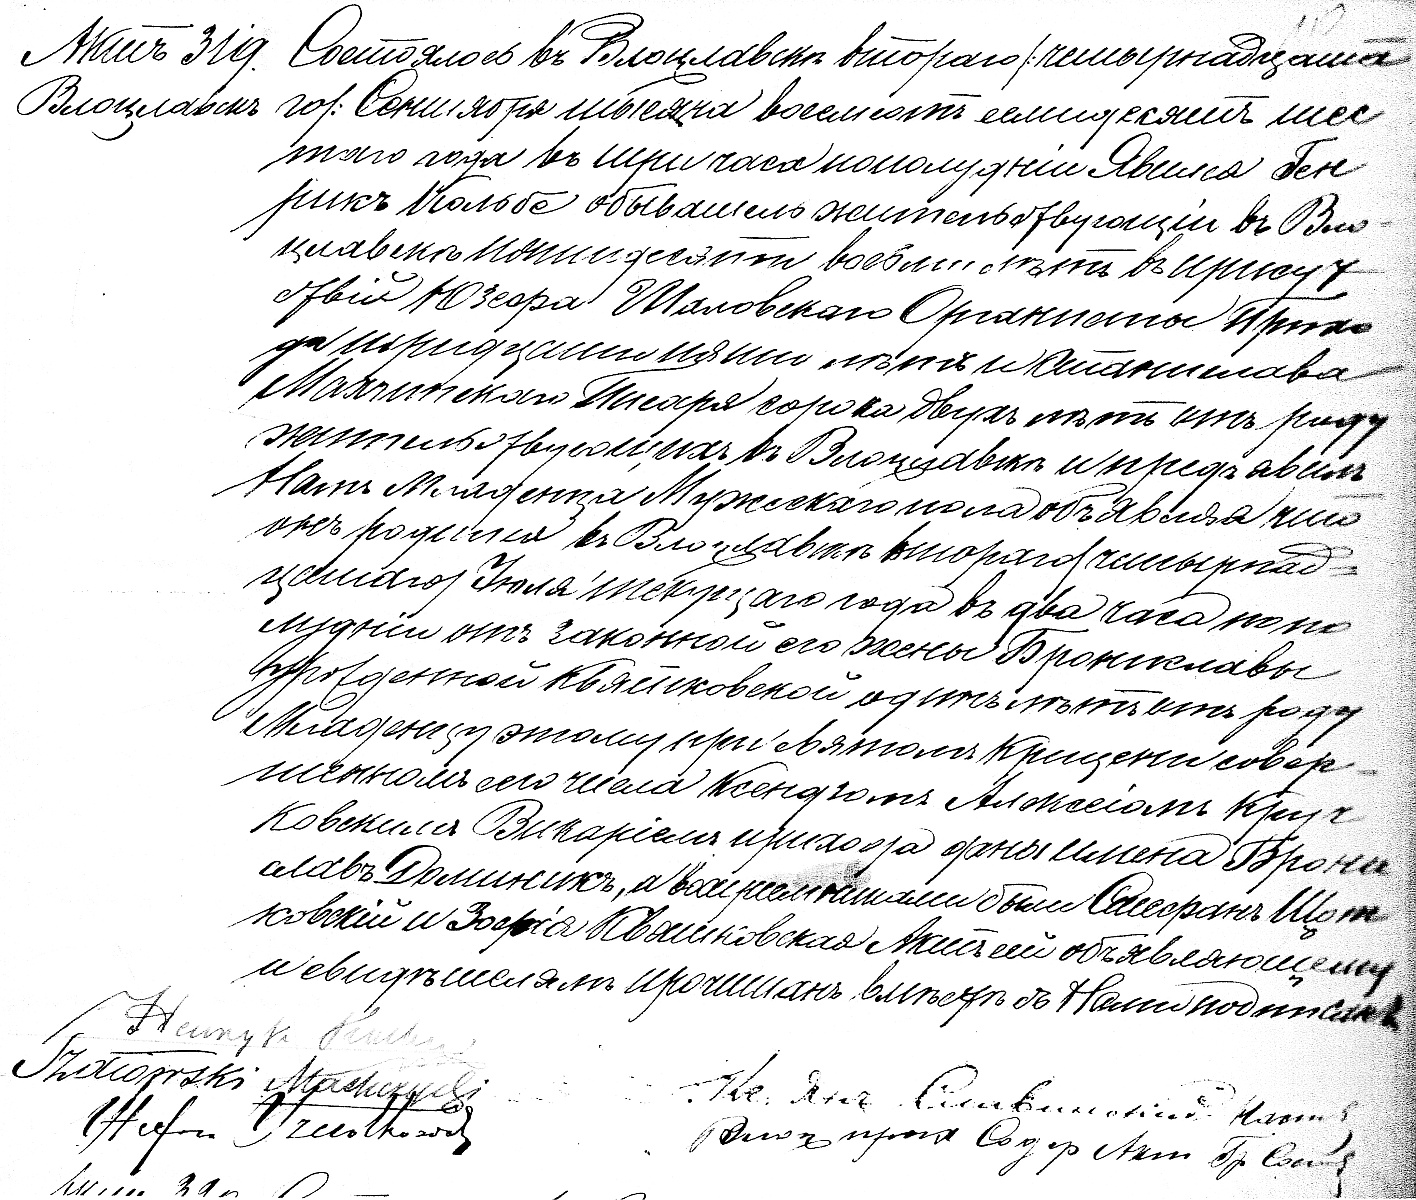 Актъ 319. Состоялось въ Влоцлавскѣ втораго /: четырнадцата
Влоцлавскъ го/: Сентября тысяча восемсотъ семидесятъ шес
таго года въ три часа пополудніи Явился Ген
рикъ Кольбе обыватель жительствующіи въ Вло-
цлавскѣ пятидесяти восьми лѣтъ въ присут
ствій Юзефа Шаловскаго Органисты Прихо
да тридцати пяти лѣтъ и Станислава
Махчинскаго Писаря сорока двухъ лѣтъ отъ роду
жительствующихъ въ Влоцлавскѣ и предъявилъ
Намъ Младенца Мужескаго пола объявляя что
онъ родился въ Влоцлавскѣ втораго/четырнад=
цатаго/ Іюля текущаго года въ два часа попо
лудніи отъ законной его жены Брониславы
урожденной Квятковской лѣтъ отъ роду
Младенцу этому при святомъ Крищени совер-
шенномъ его числа Ксендзомъ Алексіомъ Круч
ковскимъ Викаріемъ прихода даны имена Брони
славъ Доминикъ, а воспріемниками были Стефанъ Щот
ковскій и Зофія Квятковская Актъ сей объявляющему
и свидѣтелямъ прочитанъ вмѣстѣ съ Нами подписанъ
Henryk
Szałowski
Stefan
Кс. Янъ
Влоц прих Содер Акт Гр Сост
Актъ 320